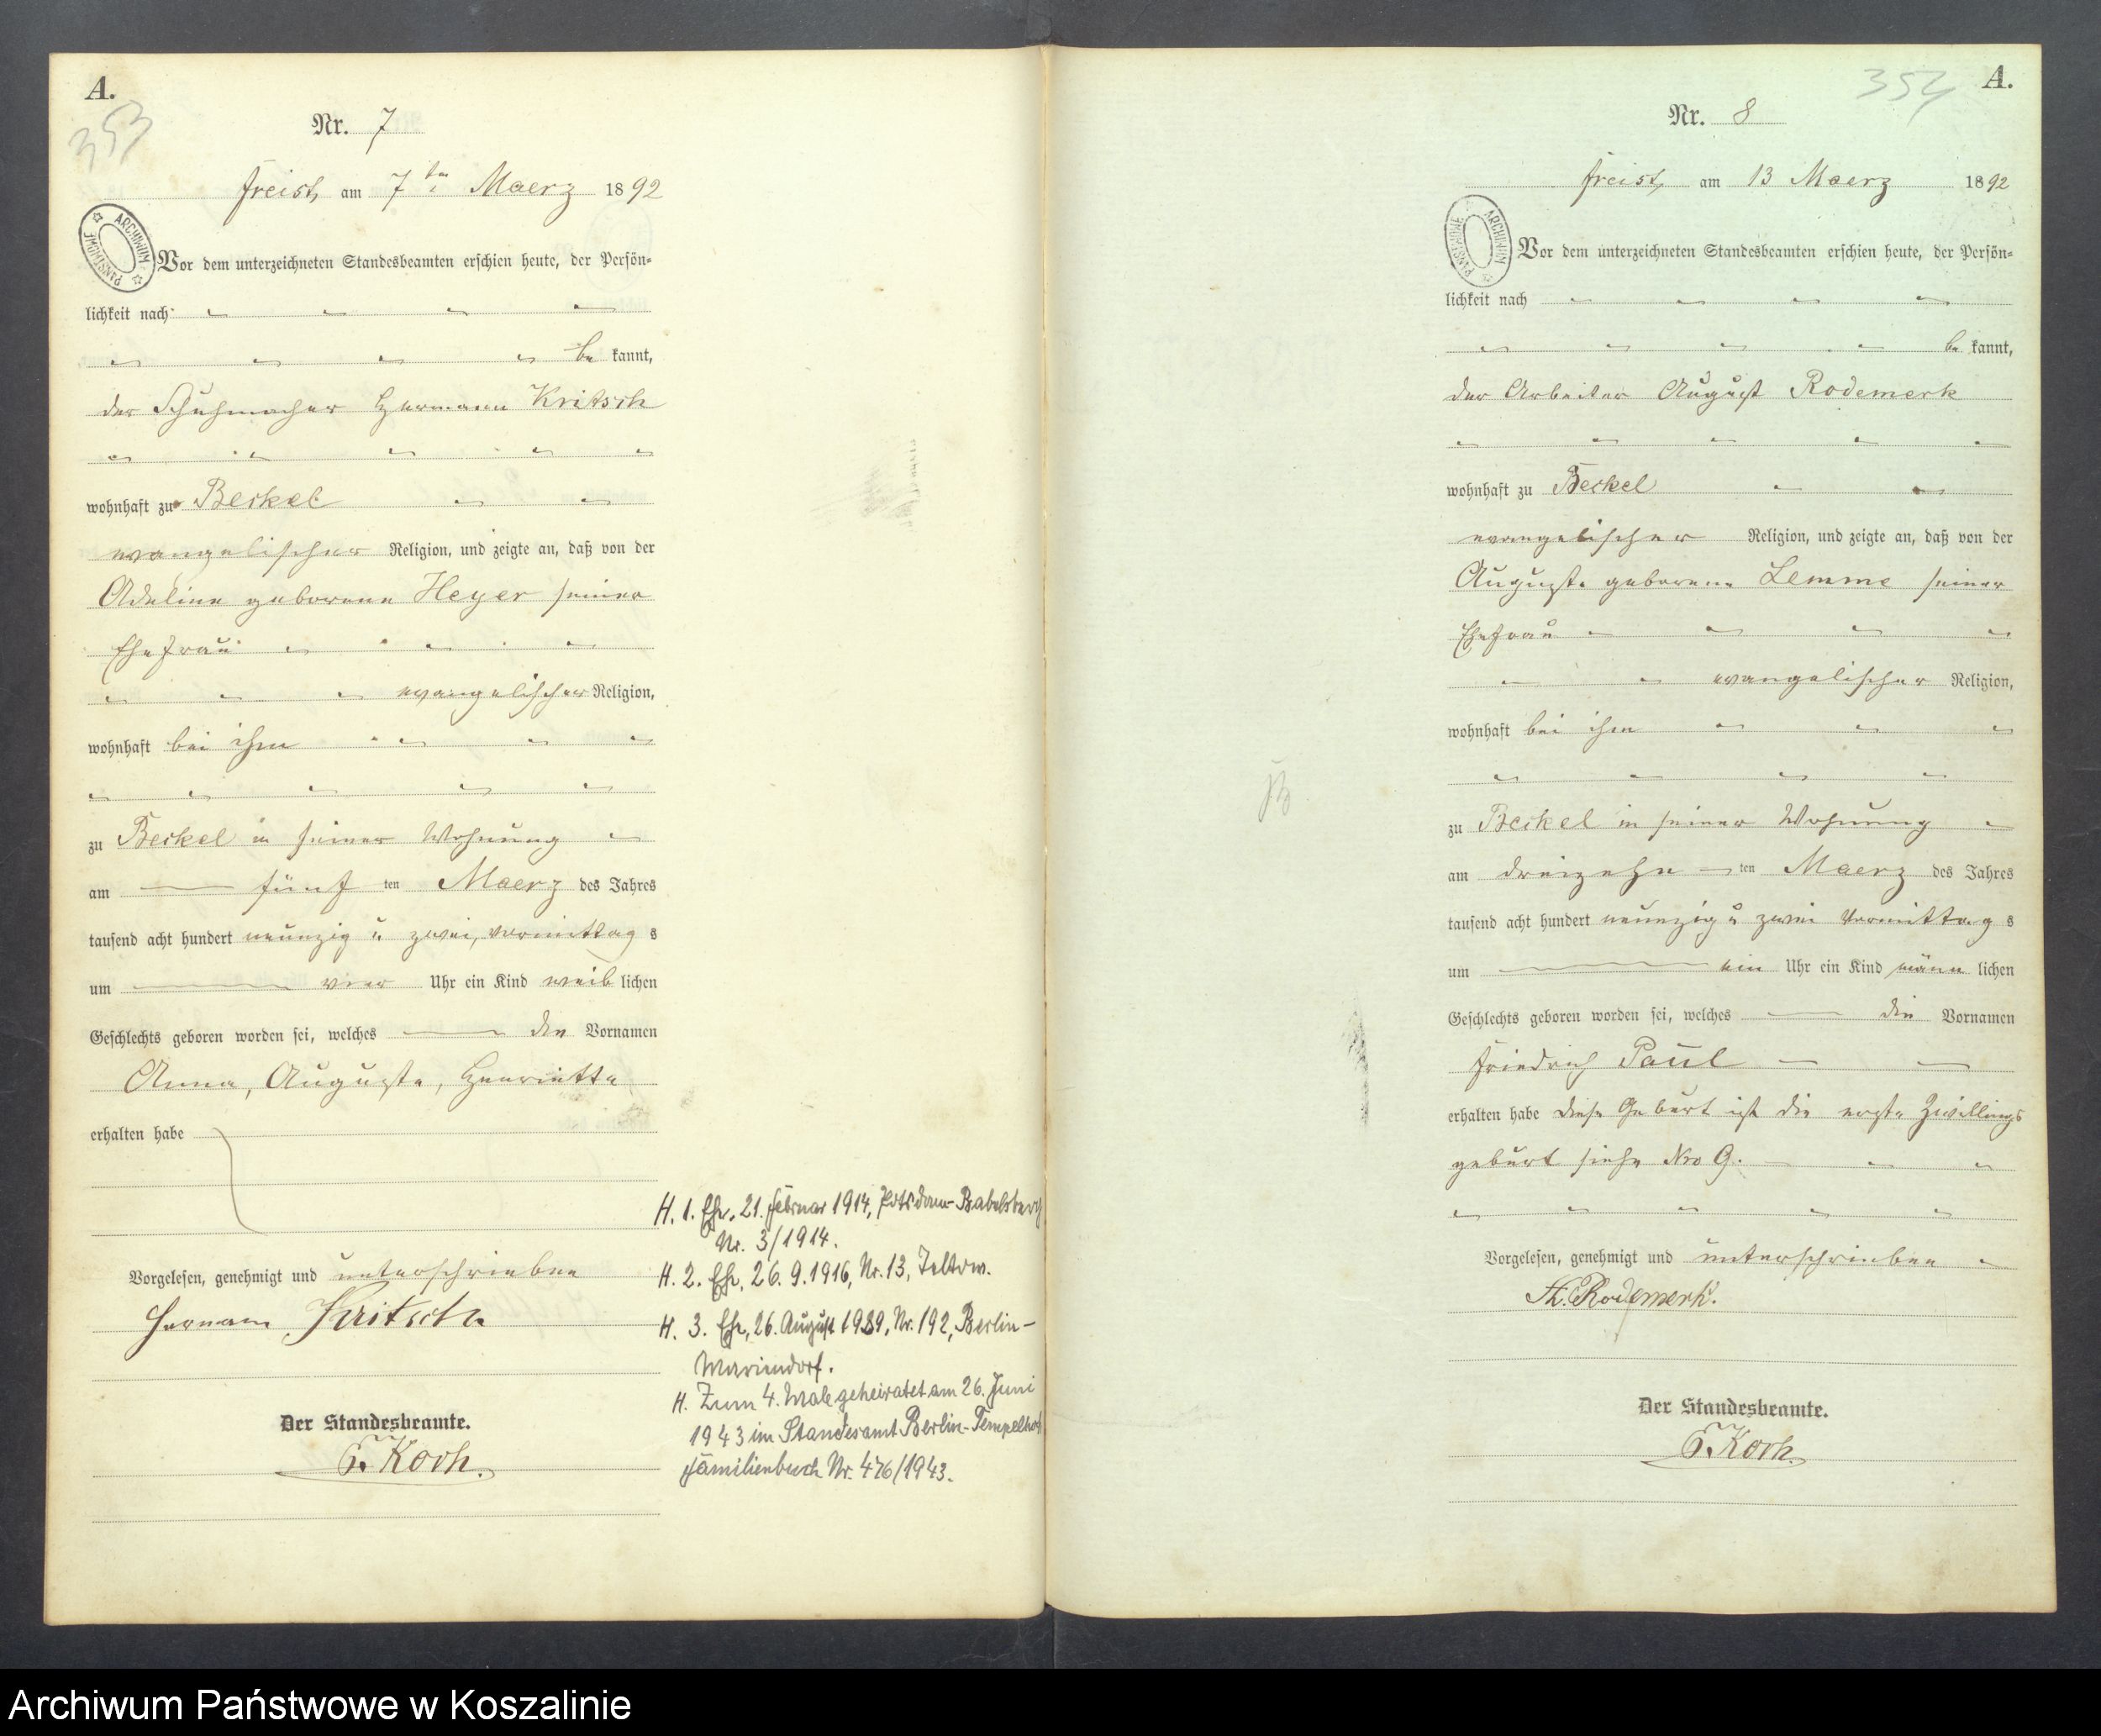 A.
353
Nr. 7
Freist, am 7ten Maerz 1892
ARCHIWUM PAŃSTWOWE
Vor dem unterzeichneten Standesbeamten erschien heute, der Persön-
lichkeit nach
be kannt,
der Schuhmacher Hermann Kritsch
wohnhaft zu Beskel
evangelischer Religion, und zeigte an, daß von der
Adeline geborene Heyer seiner
Ehefrau
evangelischer Religion,
wohnhaft bei ihm
zu Beskel in seiner Wohnung
am fünf ten Maerz des Jahres
tausend acht hundert neunzig u zwei, vormittag s
um vier Uhr ein Kind weib lichen
Geschlechts geboren worden sei, welches die Vornamen
Anna, Auguste, Henriette
erhalten habe
Vorgelesen, genehmigt und unterschrieben
Hermann Kritsch
Der Standesbeamte.
F. Koch.
H. 1. Ehe, 21. Februar 1914, Potsdam-Babelsberg
Nr. 3/1914.
H. 2. Ehe, 26.9.1916, Nr. 13, Teltow.
H. 3. Ehe, 26. August 1929, Nr. 192, Berlin-
Mariendorf.
H. Zum 4. Male geheiratet am 26. Juni
1943 im Standesamt Berlin-Tempelhof
Familienbuch Nr. 476/1943.
354
A.
Nr. 8
Freist, am 13 Maerz 1892
ARCHIWUM PAŃSTWOWE
Vor dem unterzeichneten Standesbeamten erschien heute, der Persön-
lichkeit nach
be kannt,
der Arbeiter August Rodemerk
wohnhaft zu Beskel
evangelischer Religion, und zeigte an, daß von der
Auguste geborene Lemme seiner
Ehefrau
evangelischer Religion,
wohnhaft bei ihm
zu Beskel in seiner Wohnung
am dreizehn ten Maerz des Jahres
tausend acht hundert neunzig u zwei Vormittag s
um ein Uhr ein Kind männ lichen
Geschlechts geboren worden sei, welches die Vornamen
Friedrich Paul
erhalten habe diese Geburt ist die erste Zwillings
geburt siehe Nro 9.
Vorgelesen, genehmigt und unterschrieben
A. Rodemerk.
Der Standesbeamte.
F. Koch.
Archiwum Państwowe w Koszalinie